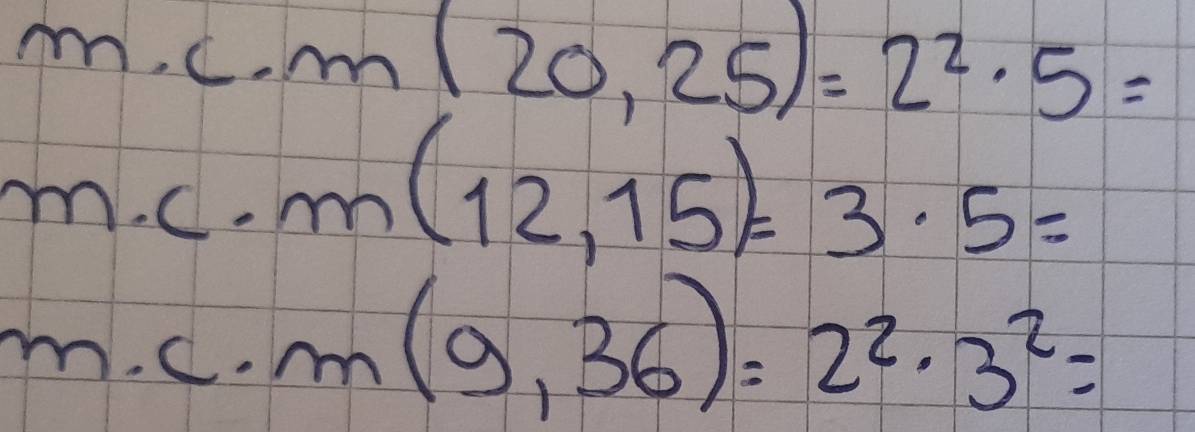 m.c.m(20,25)=2²·5=
m.c.m(12,15)=3·5=
m.c.m(9,36)=2²·3²=